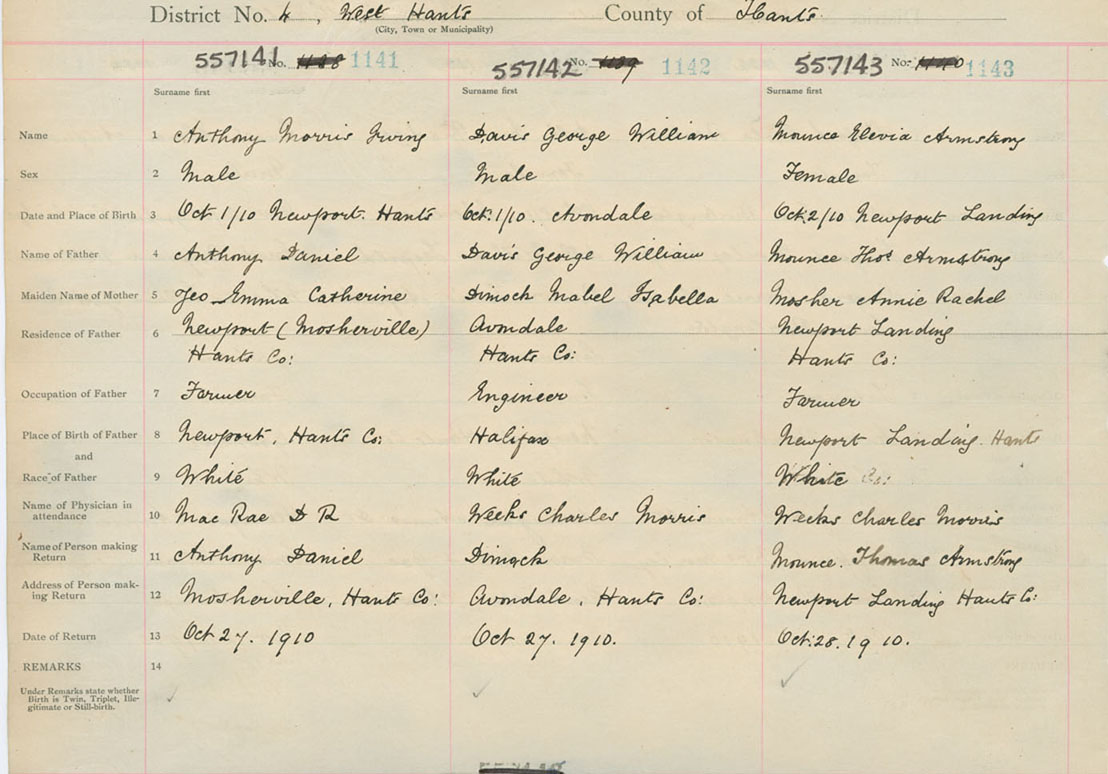 District No. 4, West Hants County of Hants
(City, Town or Municipality)
557141 No. 1141 557142 No. 1142 557143 No. 1143
Surname first Surname first Surname first
Name 1 Anthony Morris Irving Davis George William Mounce Elevia Armstrong
Sex 2 Male Male Female
Date and Place of Birth 3 Oct 1/10 Newport. Hants Oct. 1/10. Avondale Oct. 2/10 Newport Landing
Name of Father 4 Anthony Daniel Davis George William Mounce Thos Armstrong
Maiden Name of Mother 5 Emma Catherine Dimock Mabel Isabella Mosher Annie Rachel
Residence of Father 6 Newport (Mosherville) Avondale Newport Landing
Hants Co: Hants Co: Hants Co:
Occupation of Father 7 Farmer Engineer Farmer
Place of Birth of Father 8 Newport, Hants Co: Halifax Newport Landing. Hants
and
Race of Father 9 White White White Co:
Name of Physician in
attendance 10 Mac Rae D R Weeks Charles Morris Weeks Charles Morris
Name of Person making
Return 11 Anthony Daniel Dimock Mounce. Thomas Armstrong
Address of Person mak-
ing Return 12 Mosherville, Hants Co: Avondale, Hants Co: Newport Landing Hants Co:
Date of Return 13 Oct 27. 1910 Oct 27. 1910. Oct. 28. 1910.
REMARKS 14
Under Remarks state whether
Birth is Twin, Triplet, Ille-
gitimate or Still-birth.